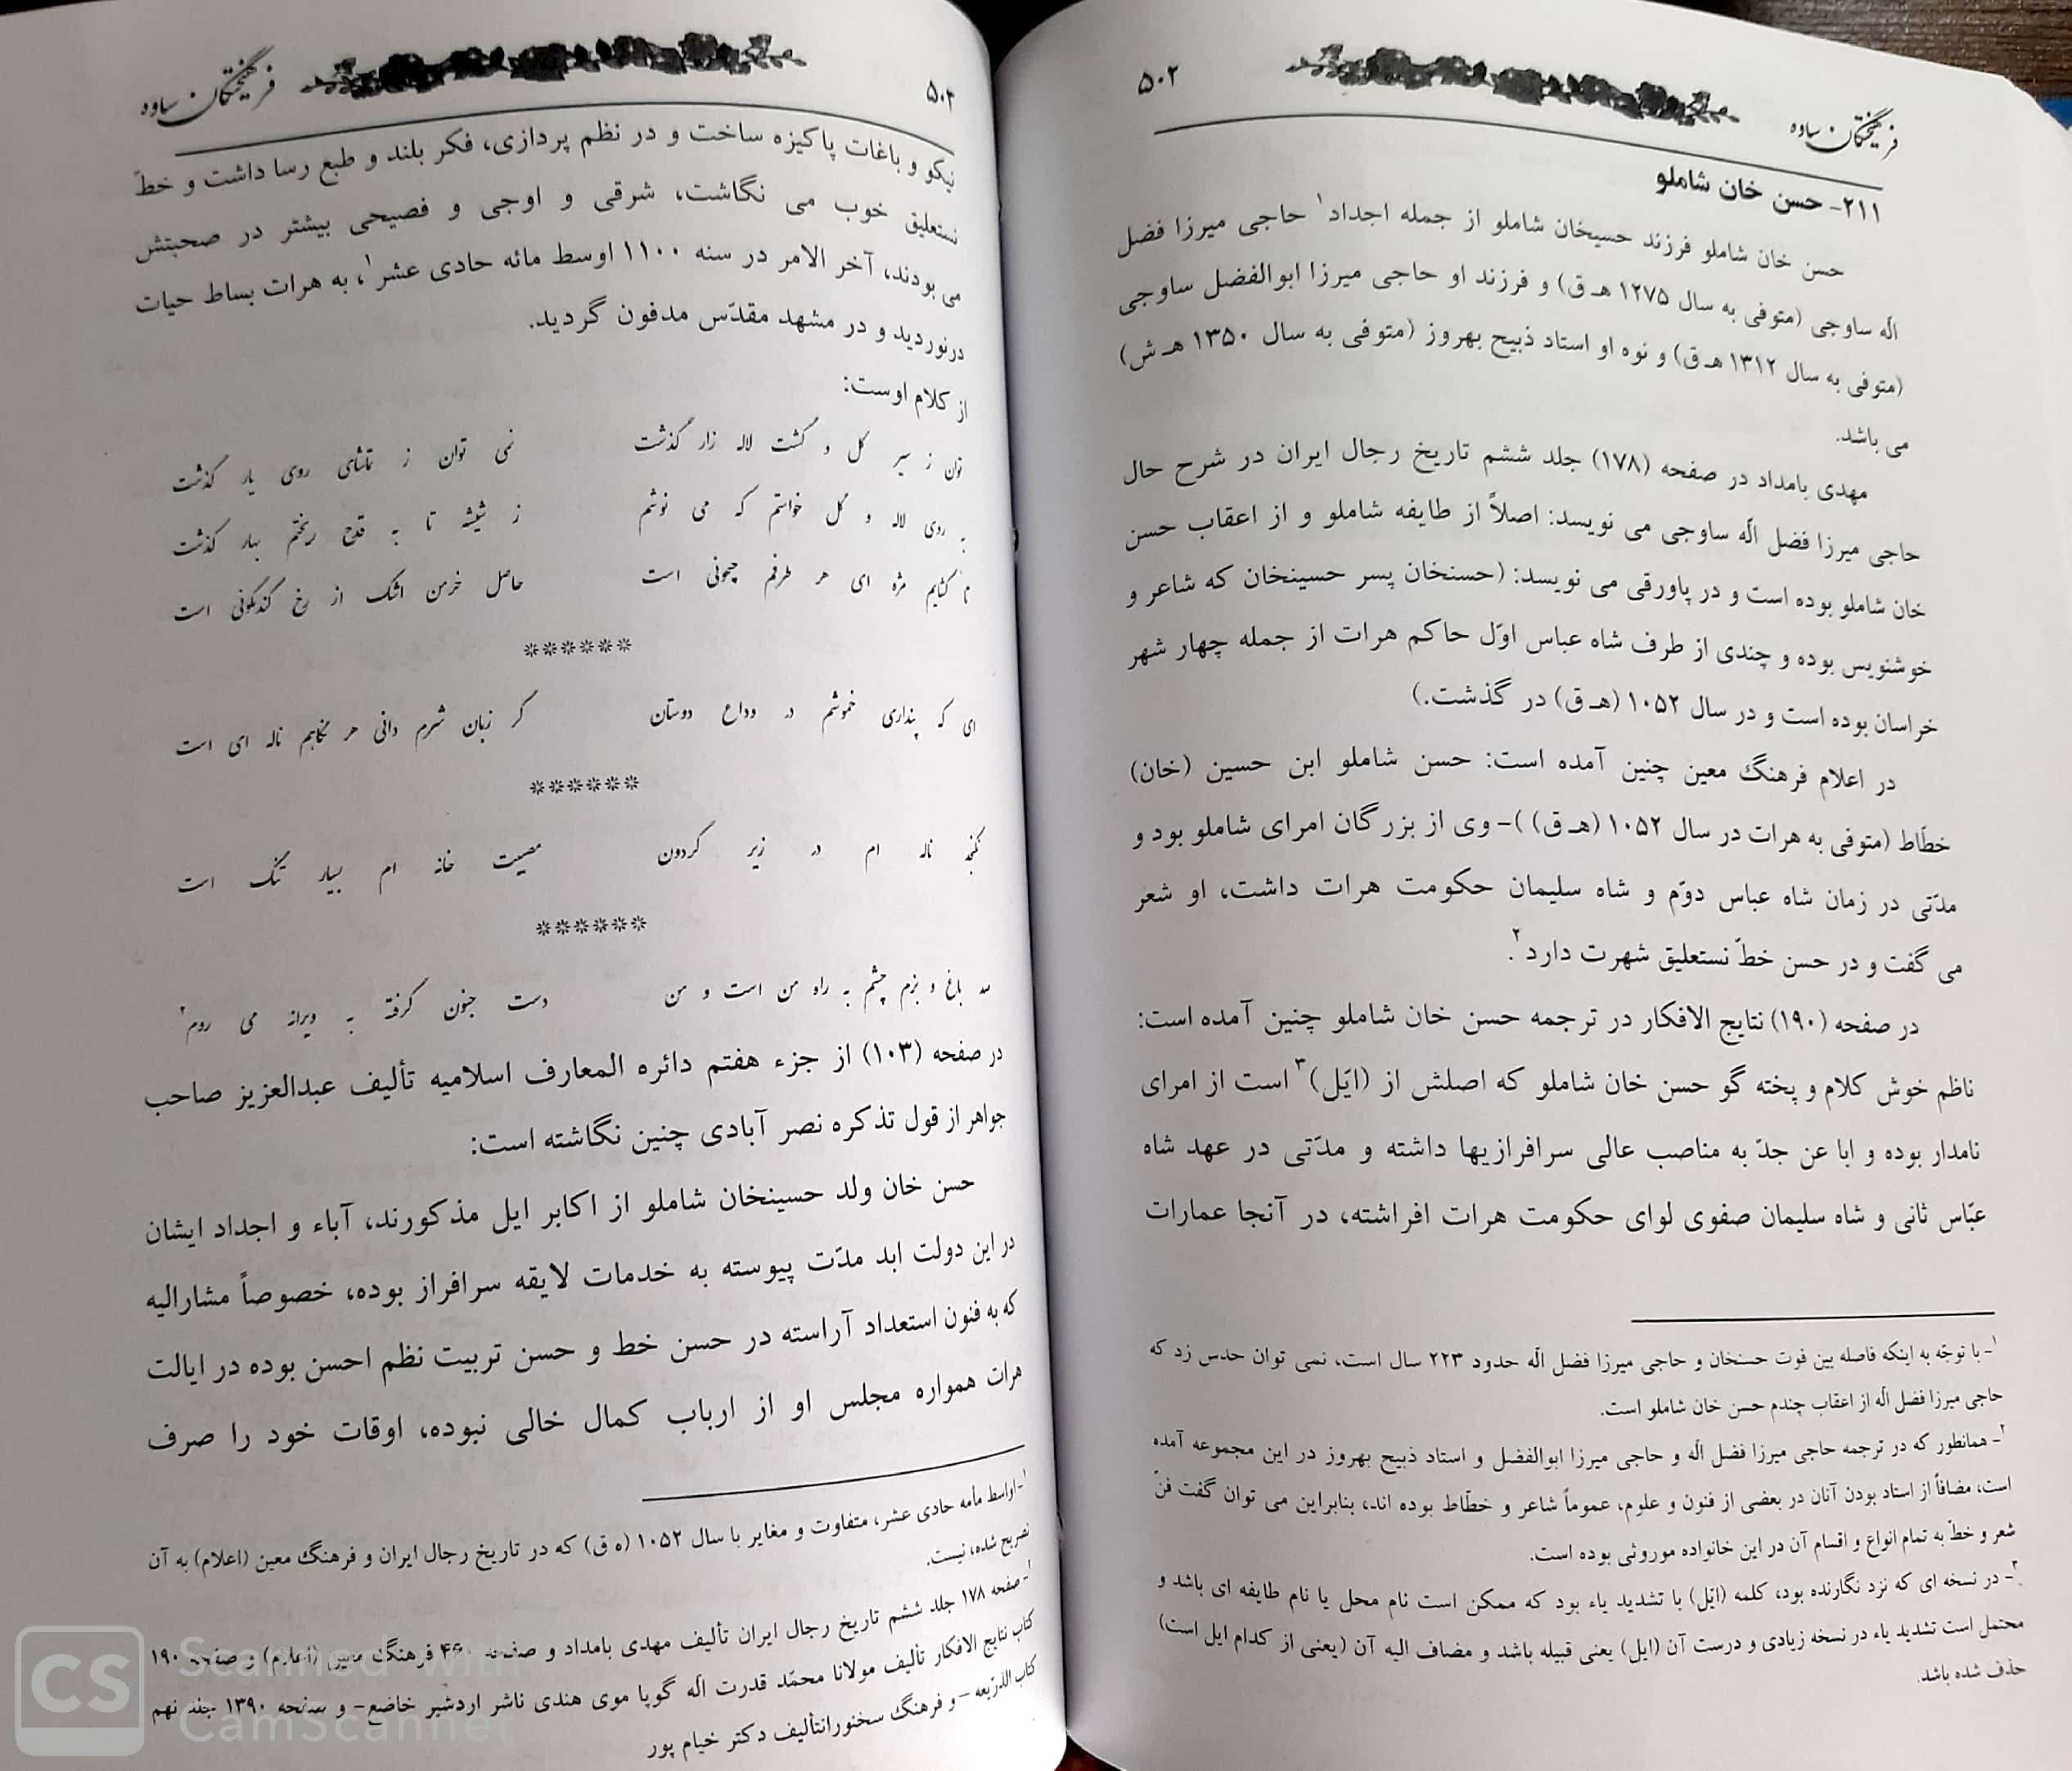 ۵۰۲
فرهیختگان ساوه
۲۱۱- حسن خان شاملو
حسن خان شاملو فرزند حسیخان شاملو از جمله اجداد۱ حاجی میرزا فضل
الّه ساوجی (متوفی به سال ۱۲۷۵ هـ ق) و فرزند او حاجی میرزا ابوالفضل ساوجی
(متوفی به سال ۱۳۱۲ هـ ق) و نوه او استاد ذبیح بهروز (متوفی به سال ۱۳۵۰ هـ ش)
می باشد.
مهدی بامداد در صفحه (۱۷۸) جلد ششم تاریخ رجال ایران در شرح حال
حاجی میرزا فضل الّه ساوجی می نویسد: اصلاً از طایفه شاملو و از اعقاب حسن
خان شاملو بوده است و در پاورقی می نویسد: (حسنخان پسر حسینخان که شاعر و
خوشنویس بوده و چندی از طرف شاه عباس اوّل حاکم هرات از جمله چهار شهر
خراسان بوده است و در سال ۱۰۵۲ (هـ ق) در گذشت.)
در اعلام فرهنگ معین چنین آمده است: حسن شاملو ابن حسین (خان)
خطّاط (متوفی به هرات در سال ۱۰۵۲ (هـ ق) )- وی از بزرگان امرای شاملو بود و
مدّتی در زمان شاه عباس دوّم و شاه سلیمان حکومت هرات داشت، او شعر
می گفت و در حسن خطّ نستعلیق شهرت دارد۲.
در صفحه (۱۹۰) نتایج الافکار در ترجمه حسن خان شاملو چنین آمده است:
ناظم خوش کلام و پخته گو حسن خان شاملو که اصلش از (ایّل)۳ است از امرای
نامدار بوده و ابا عن جدّ به مناصب عالی سرافرازیها داشته و مدّتی در عهد شاه
عبّاس ثانی و شاه سلیمان صفوی لوای حکومت هرات افراشته، در آنجا عمارات
۱- با توجّه به اینکه فاصله بین فوت حسنخان و حاجی میرزا فضل الّه حدود ۲۲۳ سال است، نمی توان حدس زد که
حاجی میرزا فضل الّه از اعقاب چندم حسن خان شاملو است.
۲- همانطور که در ترجمه حاجی میرزا فضل الّه و حاجی میرزا ابوالفضل و استاد ذبیح بهروز در این مجموعه آمده
است، مضافاً از استاد بودن آنان در بعضی از فنون و علوم، عموماً شاعر و خطّاط بوده اند، بنابراین می توان گفت فنّ
شعر و خطّ به تمام انواع و اقسام آن در این خانواده موروثی بوده است.
۳- در نسخه ای که نزد نگارنده بود، کلمه (ایّل) با تشدید یاء بود که ممکن است نام محل یا نام طایفه ای باشد و
محتمل است تشدید یاء در نسخه زیادی و درست آن (ایل) یعنی قبیله باشد و مضاف الیه آن (یعنی از کدام ایل است)
حذف شده باشد.
۵۰۳
فرهیختگان ساوه
نیکو و باغات پاکیزه ساخت و در نظم پردازی، فکر بلند و طبع رسا داشت و خطّ
نستعلیق خوب می نگاشت، شرقی و اوجی و فصیحی بیشتر در صحبتش
می بودند، آخر الامر در سنه ۱۱۰۰ اوسط مائه حادی عشر۱، به هرات بساط حیات
درنوردید و در مشهد مقدّس مدفون گردید.
از کلام اوست:
توان ز سیر گل و گشت لاله زار گذشت نمی توان ز تماشای روی یار گذشت
به روی لاله و گل خواستم که می نوشم ز شیشه تا به قدح ریختم بهار گذشت
تا گشایم مژه ای هر طرفم جیحونی است حاصل خرمن اشک از رخ گندمگونی است
******
ای که پنداری خموشم در وداع دوستان گر زبان شرم دانی هر نگاهم ناله ای است
******
نگنجد ناله ام در زیر گردون مصیبت خانه ام بسیار تنگ است
******
صد باغ و بزم چشم به راه من است و من دست جنون گرفته به ویرانه می روم۲
در صفحه (۱۰۳) از جزء هفتم دائره المعارف اسلامیه تألیف عبدالعزیز صاحب
جواهر از قول تذکره نصر آبادی چنین نگاشته است:
حسن خان ولد حسینخان شاملو از اکابر ایل مذکورند، آباء و اجداد ایشان
در این دولت ابد مدّت پیوسته به خدمات لایقه سرافراز بوده، خصوصاً مشارالیه
که به فنون استعداد آراسته در حسن خط و حسن تربیت نظم احسن بوده در ایالت
هرات همواره مجلس او از ارباب کمال خالی نبوده، اوقات خود را صرف
۱- اواسط مأمه حادی عشر، متفاوت و مغایر با سال ۱۰۵۲ (ه ق) که در تاریخ رجال ایران و فرهنگ معین (اعلام) به آن
تصریح شده، نیست.
۲- صفحه ۱۷۸ جلد ششم تاریخ رجال ایران تألیف مهدی بامداد و صفحه ۴۶۰ فرهنگ معین (اعلام) و صفحه ۱۹۰
کتاب نتایج الافکار تألیف مولانا محمّد قدرت الّه گوپا موی هندی ناشر اردشیر خاضع- و صفحه ۱۳۹۰ جلد نهم
کتاب الذرّیعه – و فرهنگ سخنورانتألیف دکتر خیام پور
CS Scanned with
CamScanner